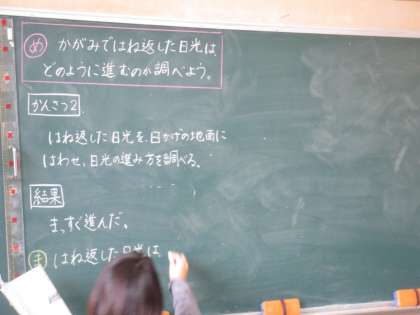 め かがみではね返した日光は
どのように進むのか調べよう。
かんさつ2
はね返した日光を、日かげの地面に
はわせ、日光の進み方を調べる。
結果
まっすぐ進んだ。
ま はね返した日光は、